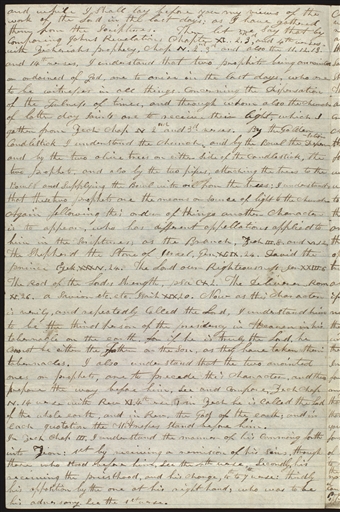 and useful I shall lay before you my views of the
work of the Lord in the last days; as I have gathered
them from the Scriptures. From let me say that by
comparing John's Revelation, Chapter XI, 3d, and 4th verses
with Zechariah's prophecy, Chap IV, 2, 3d and also the 11, 12, 13
and 14th verses, I understand that two prophets being anointed
or ordained of God, are to arise in the last days, who are
to be witnesses in all things concerning the dispensation
of the fulness of times, and through whom also the Church
of latter day saints are to receive their light, which I
gather from Zech Chap IV 2d and 3d verses. By the Golden
Candlestick I understand the Church, and by the Bowl
and by the two olive trees on either side of the candlestick, the
two prophets and also by the two pipes, attaching the trees to the
Bowl and supplying the Bowl with oil from the trees; I understand
that these two prophets are the means or source of light to the Church
Again following this order of things another Character
is to appear, who has different appellations applied to
him in the Scriptures, as the Branch, Zech III.8, and VI.12
The Shepherd the Stone of Israel, Gen XLIX.24. David the
prince Ezek XXXIV.24. The Lord our Righteousness Jer XXIII.6
The Rod of the Lord's strength, psa CX.2. The Deliverer Rom
XI.26. a Savior, etc. Isaiah XIX.20. Now as this Character
is verily, and repeatedly called the Lord, I understand him
to be the third person of the in Heaven in his
tabernacle on the earth, for if he is truly the Lord, he
cannot be either the father or the Son, as they have taken their
tabernacles. I also understand that the two anointed
ones, or prophets, are to precede this character, and to
prepare the way before him, see and compare Zech Chap
IV. 14 verse with Rev XI.4th verse. In Zech he is called the Lord
of the whole earth, and in Rev the God of the earth; and in
each quotation the Witnesses stand before him.
In Zech Chap III, I understand the manner of his coming forth
into : 1st by receiving a remission of his sins, through
those who stood before him, see the 4th verse Secondly, his
receiving the priesthood, and his charge, to 7 verse: thirdly
his opposition by the one at his right hand, who was to be
his adversary see the 1st verse.